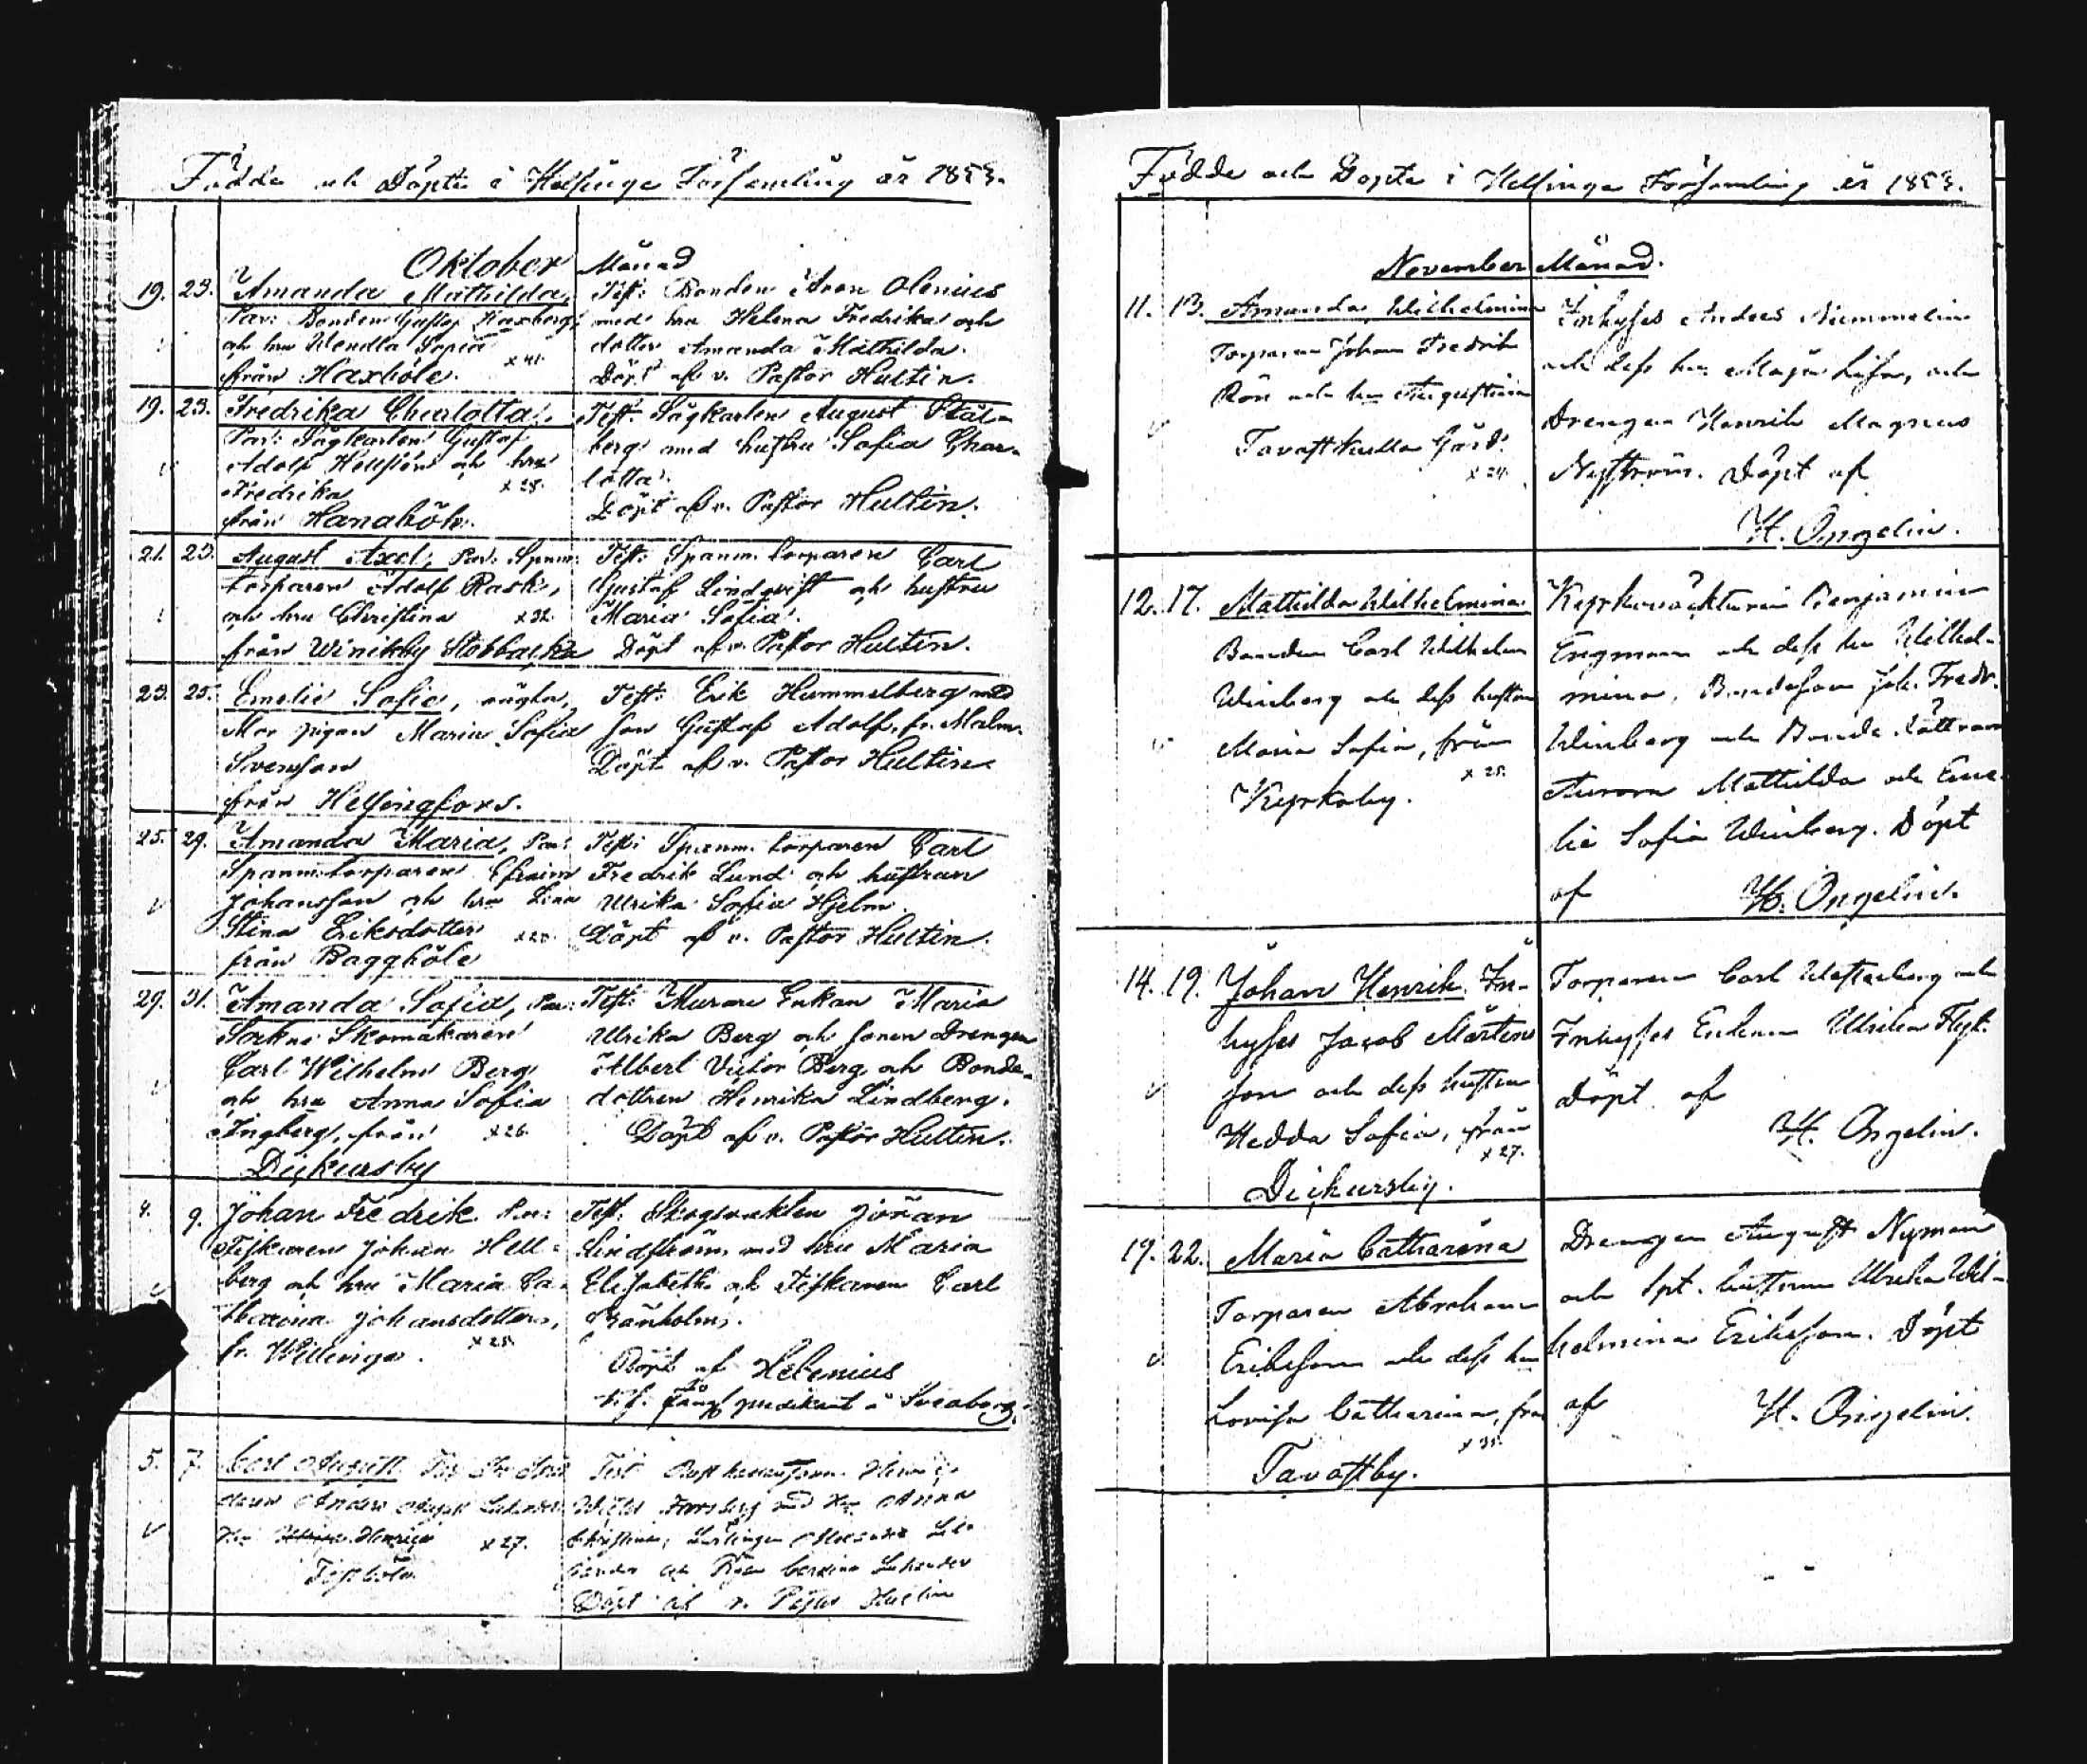 Födde och Döpte i Helsinge Församling år 1853.
Oktober Månad
19. 23. Amanda Mathilda,
Par: Bonden Gustaf Haxberg
och hru Wendla Sofia
x 41.
från Haxböle.
Test: Bonden Aron Olenius
med hru Helena Fredrika och
dotter Amanda Mathilda.
Döpt af v. Pastor Hultin.
19. 23. Fredrika Charlotta,
Par: Sågkarlen Gustaf
Adolf Hellsten och hru
Fredrika x 28.
från Hanaböle.
Test. Sågkarlen August Stål-
berg med hustru Sofia Char-
lotta.
Döpt af v. Pastor Hultin.
21. 23. August Axel, Par: Spanm:
torparen Adolf Rask,
och hru Christina x 32.
från Winikby Stobbacka
Test: Spanm. torparen Carl
Gustaf Lindqvist och hustru
Maria Sofia.
Döpt af v. Pastor Hultin.
23. 25. Emelie Sofie, oägta,
Mor pigan Maria Sofia
Svensson
från Helsingfors.
Test: Erik Hummelberg med
son Gustaf Adolf, fr. Malm.
Döpt af v. Pastor Hultin.
25. 29. Amanda Maria, Par:
Spanm:torparen Efraim
Johansson och hru Lina
Stina Eriksdotter x 20.
från Baggböle
Test: Spanm. torparen Carl
Fredrik Lund och hustrun
Ulrika Sofia Hjelm.
Döpt af v. Pastor Hultin.
29. 31. Amanda Sofia, Par:
Sockne Skomakaren
Carl Wilhelm Berg
och hru Anna Sofia
Ingberg, från x 26.
Dickursby
Test: Murare Enkan Maria
Ulrika Berg och sonen Drengen
Albert Victor Berg och Bonde-
dottren Henrika Lindberg.
Döpt af v. Pastor Hultin.
4. 9. Johan Fredrik. Par:
Fiskaren Johan Hell-
berg och hru Maria Ca-
tharina Johansdotter,
fr. Willinge. x 28.
Test. Skogvakten Jöran
Lindström med hru Maria
Elisabeth och Fiskaren Carl
Granholm.
Döpt af Helenius
t.f. Fångpredikant å Sveaborg.
5. 7. Carl August
Anders August
Henrica x 27.
Test.
Anna
Christina,
Döpt af v. Pastor Hultin
Födde och Döpte i Helsinge Församling år 1853.
November Månad.
11. 13. Amanda Wilhelmina
Torparen Johan Fredrik
Rön och hru Augustina
Tavastkulla Gård.
x 24.
Inhyses Anders Nummelin
och dess hru Maja Lisa, och
Drengen Henrik Magnus
Nyström. Döpt af
H. Ongelin.
12. 17. Mathilda Wilhelmina
Bonden Carl Wilhelm
Winberg och dess hustru
Maria Sofia, från
x 28.
Kyrkoby.
Kyrkoväktaren Benjamin
Engman och dess hru Wilhel-
mina, Bondeson Joh. Fredr.
Winberg och Bonde döttrarna
Aurora Mathilda och Eme-
lie Sofia Winberg. Döpt
af H. Ongelin.
14. 19. Johan Henrik. In-
hyses Jacob Mårtens
son och dess hustru
Hedda Sofia, från
x 27.
Dickursby.
Torparen Carl Westerberg och
Inhyses Enkan Ulrika Flygt.
Döpt af
H. Ongelin.
19. 22. Maria Catharina
Torparen Abraham
Eriksson och dess hru
Lovisa Catharina, från
x 31.
Tavastby.
Drengen August Nyman
och Spt. hustrun Ulrika Wil-
helmina Eriksson. Döpt
af H. Ongelin.